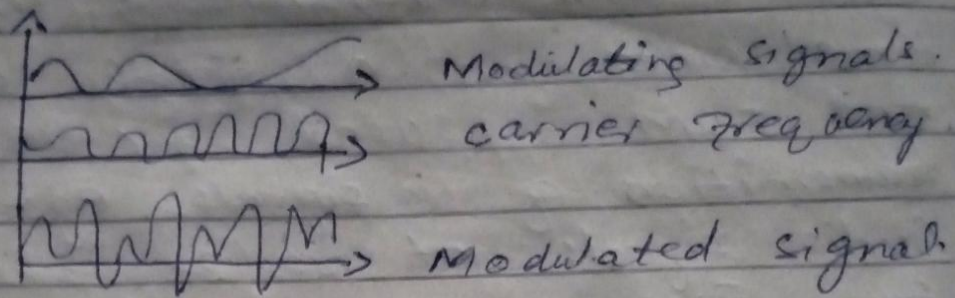 Modulating signals.
carrier Frequency
Modulated signal.